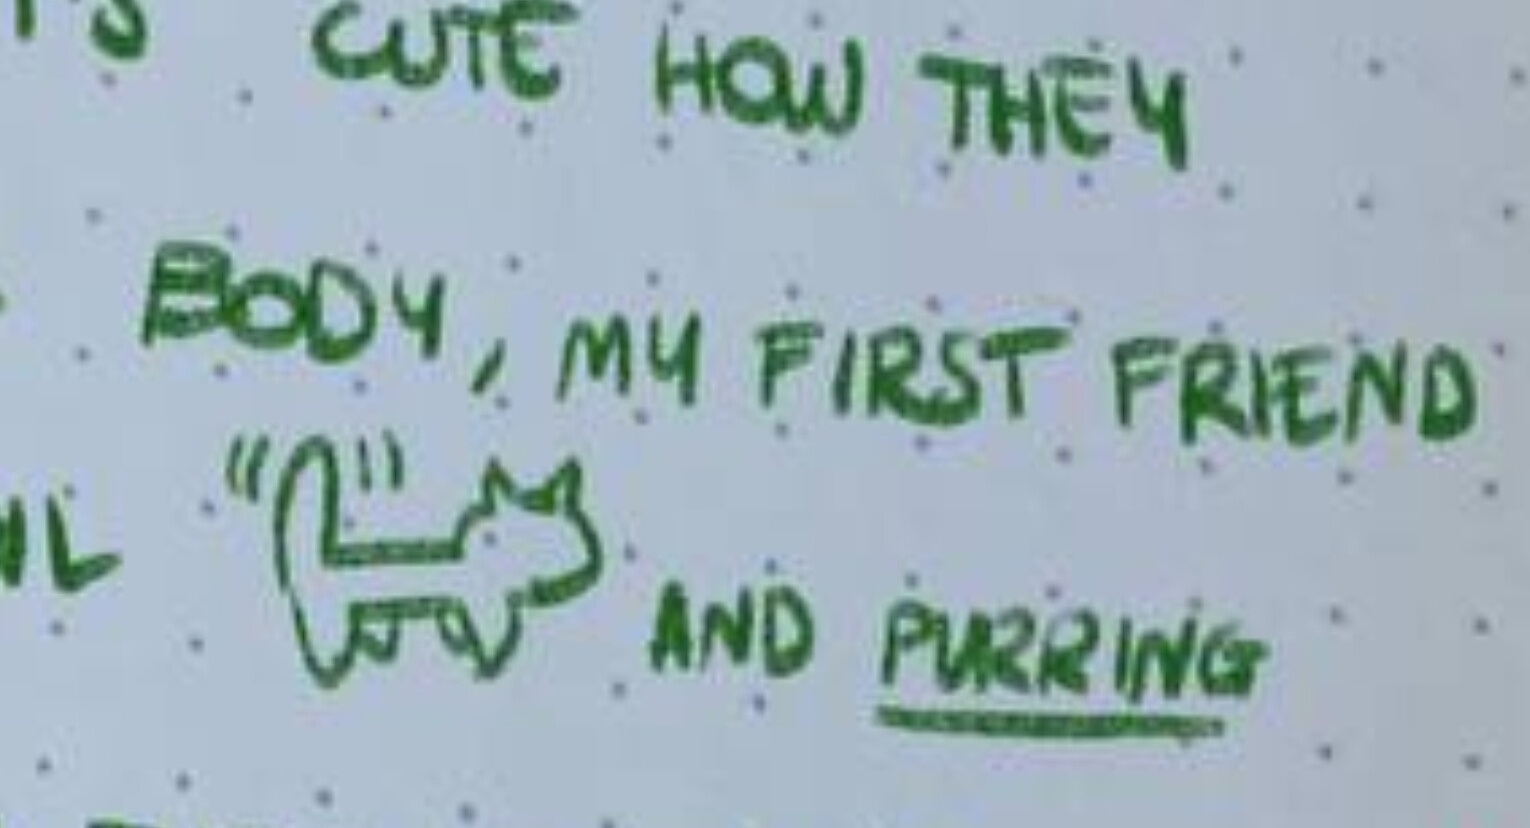 CUTE HOW THEY
BODY, MY FIRST FRIEND
AND PURRING